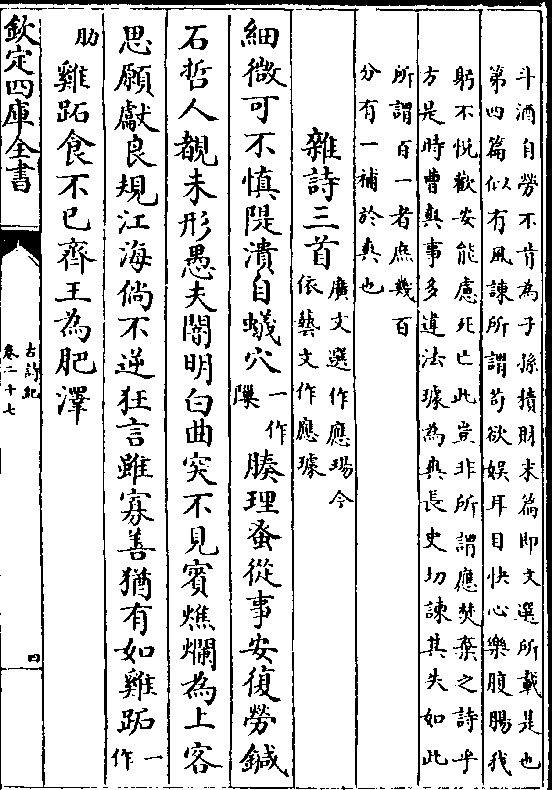 斗酒自勞不肯為子孫積財末篇即文選所載是也
第四篇似有風諫所謂苟欲娛耳目快心樂腹腸我
躬不悅歡安能慮死亡此豈非所謂應焚棄之詩乎
方是時曹爽事多違法璩為爽長史切諫其失如此
所謂百一者庶幾百
分有一補於爽也
雜詩三首廣文選作應瑒今
依藝文作應璩
細微可不慎隄潰自蟻穴一作
隟腠理蚤從事安復勞鍼
石哲人覩未形愚夫闇明白曲突不見賓燋爛為上客
思願獻良規江海倘不逆狂言雖寡善猶有如雞跖一
作
肋雞跖食不已齊王為肥澤
欽定四庫全書
古詩紀
卷二十七
四